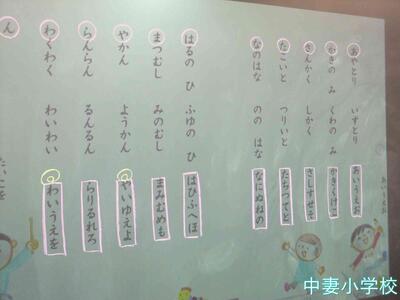 あいうえお
あやとり いすとり あいうえお
かきのみ くわのみ かきくけこ
さんかく しかく さしすせそ
たこいと つりいと たちつてと
なのはな ののはな なにぬねの
はるのひ ふゆのひ はひふへほ
まつむし みのむし まみむめも
やかん ようかん やいゆえよ
らんらん るんるん らりるれろ
わくわく わいわい わいうえを
ん
中妻小学校